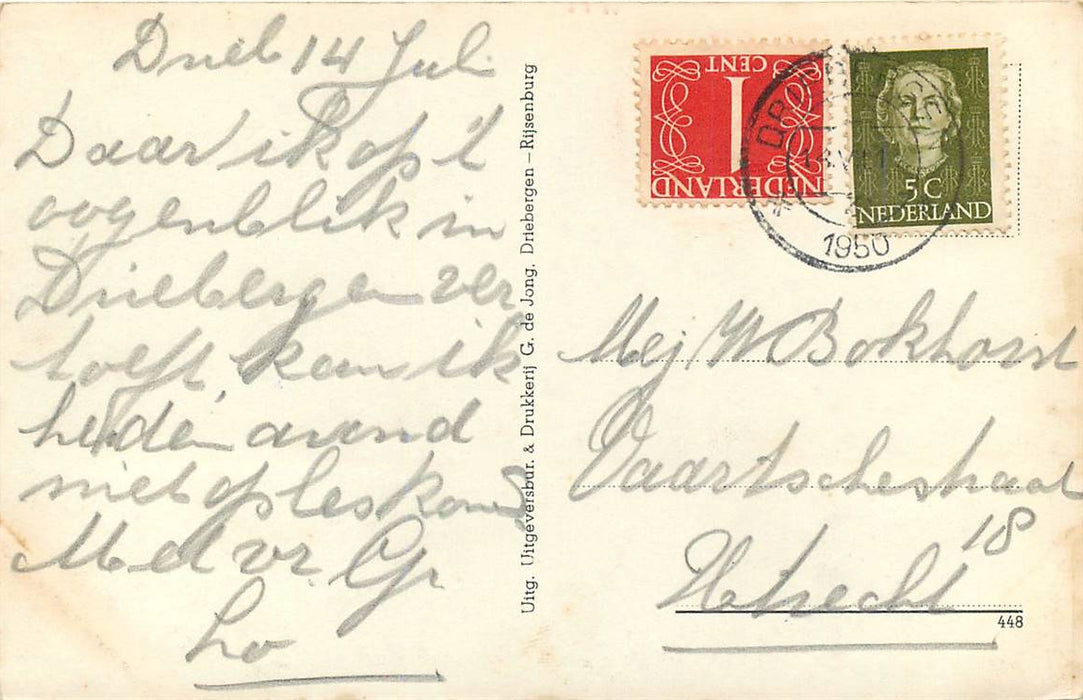 Drieb 14 Juli
Daar ik op 't
oogenblik in
Driebergen ver
toeft kan ik
heden avond
niet op les komen
Met vr. Gr
Lo
Uitg. Uitgeversbur. & Drukkerij G. de Jong, Driebergen – Rijsenburg
1
CENT
NEDERLAND
5 C
NEDERLAND
1950
Mej W Bokhorst
Vaartschestraat
18
Utrecht
448